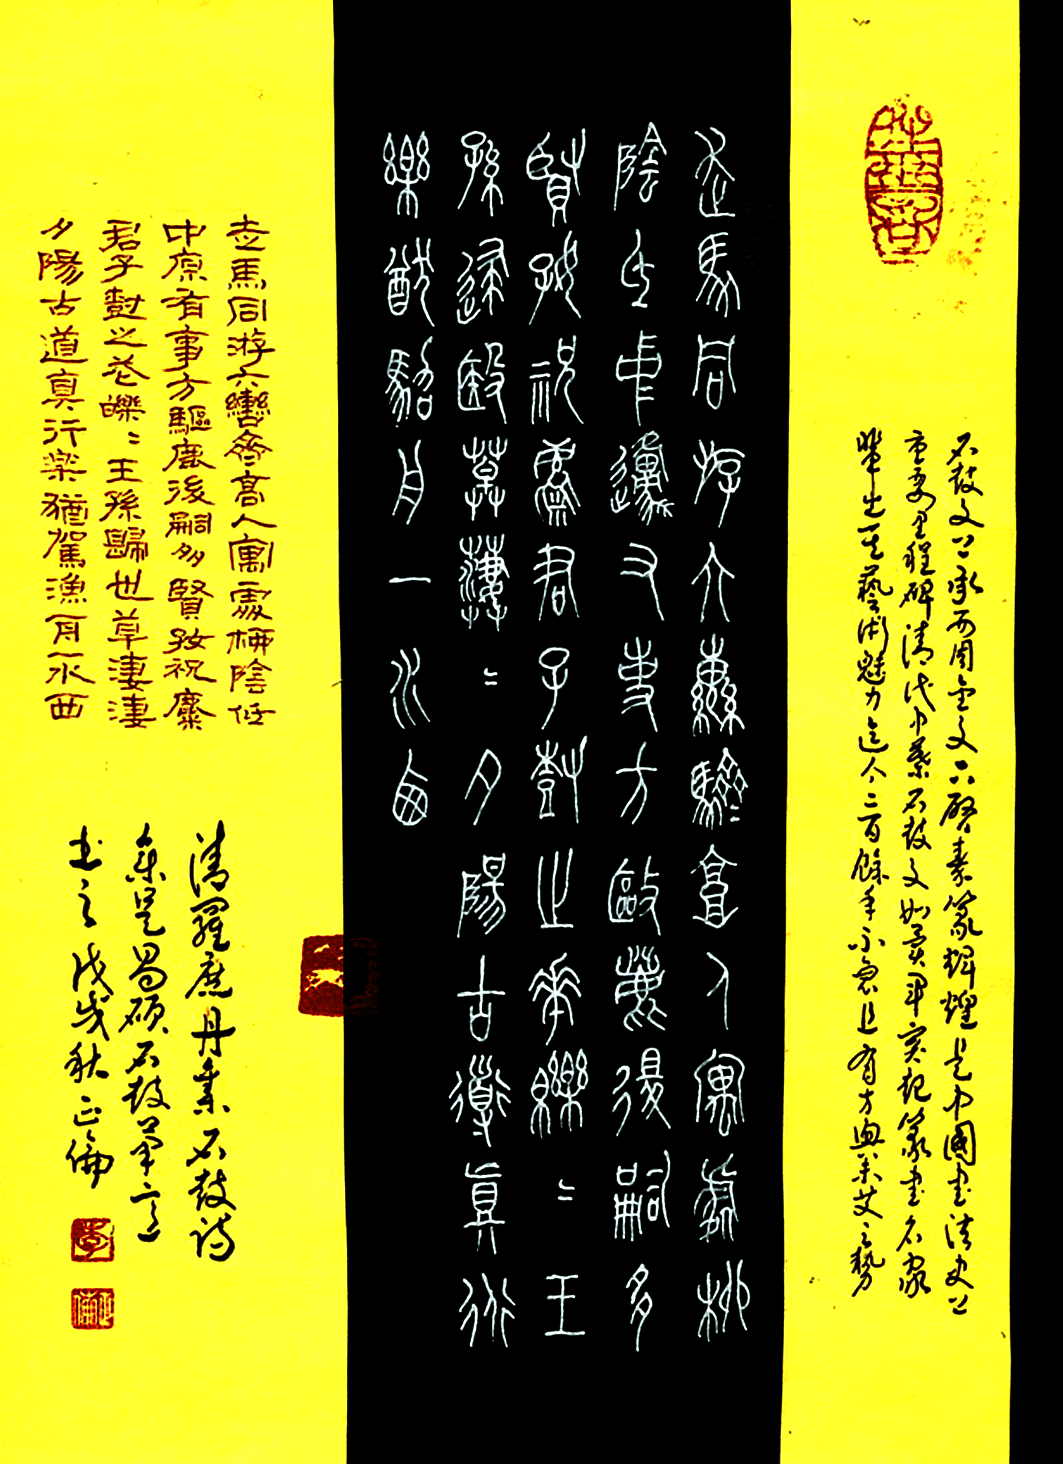 石鼓文上承西周金文下啓秦篆輝煌是中國書法史上
重要里程碑清代中葉石鼓文如異軍突起篆書名家
輩出其藝術魅力迄今二百餘年不衰且有方興未艾之勢
走馬同游六轡齊高人寓處柳
陰中邍又事方敺後嗣多
賢祝君子止華〻王
孫〻夕陽古道真行
樂猷舟一水西
走馬同游六轡齊高人寓處柳陰低
中原有事方驅鹿後嗣多賢孜祝麋
君子對之花皪〻王孫歸也草淒淒
夕陽古道真行樂猶駕漁舟一水西
清羅庶丹集石鼓詩
吴昌碩石鼓筆意
書之戊戌秋正倫